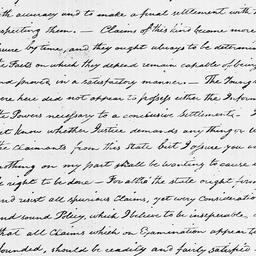 with accuracy and to make a final settlement with
specting them. — Claims of this kind become more
cure by time, and they ought always to be determin
the Facts on which they depend remain capable of being
and proved in a satisfactory manner. — The
here did not appear to possess either the Inform
the Powers necessary to a conclusive Settlement —
not know whether Justice demands any thing or
the Claimants from this State but I assure you
nothing on my part shall be wanting to cause
be right to be done — For altho the State ought
and resist all spurious Claims, yet every Consideration
and sound Policy, which I believe to be inseperable
that all Claims which on Examination appear to
founded, should be readily and fairly satisfied —